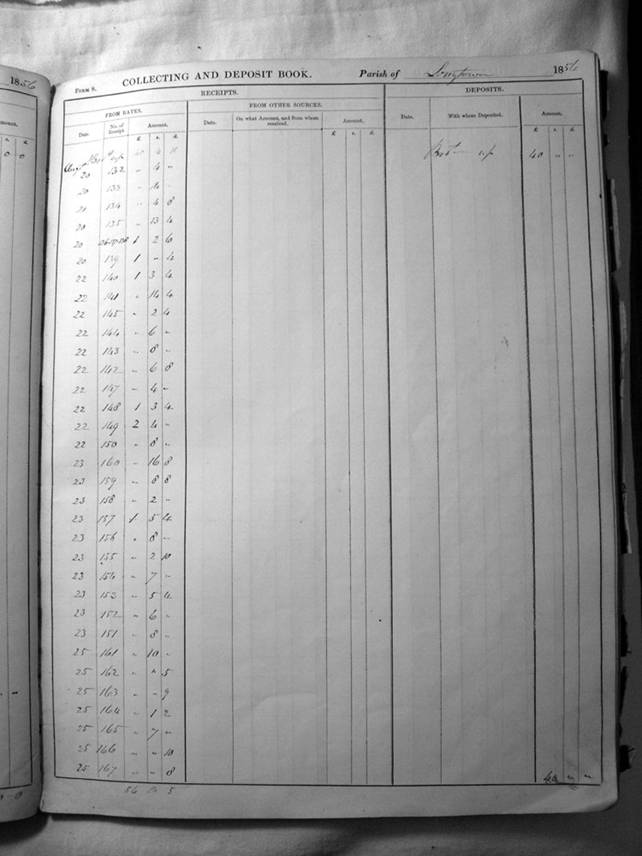 1856
FORM 8. COLLECTING AND DEPOSIT BOOK. Parish of Longtown 1856
RECEIPTS. DEPOSITS.
FROM RATES. FROM OTHER SOURCES.
Date. No. of Receipt. Amount. Date. On what Account, and from whom received. Amount. Date. With whom Deposited. Amount.
£ s. d. £ s. d. £ s. d.
40 " "
20 132 " 4 "
20 133 " 14 "
20 134 " 4 8
20 135 " 13 4
20 1 2 6
20 139 1 " 4
22 140 1 3 4
22 141 " 14 4
22 145 " 2 4
22 144 " 6 "
22 143 " 8 "
22 142 " 6 8
22 147 " 4 "
22 148 1 3 4
22 149 2 4 "
22 150 " 8 "
23 160 " 16 8
23 159 " 8 8
23 158 " 2 "
23 157 1 5 4
23 156 " 8 "
23 155 " 2 10
23 154 " 7 "
23 153 " 5 4
23 152 " 6 "
23 151 " 8 "
25 161 " 10 "
25 162 " " 5
25 163 " " 9
25 164 " 1 2
25 165 " 7 "
25 166 " " 10
25 167 " " 8
40 " "